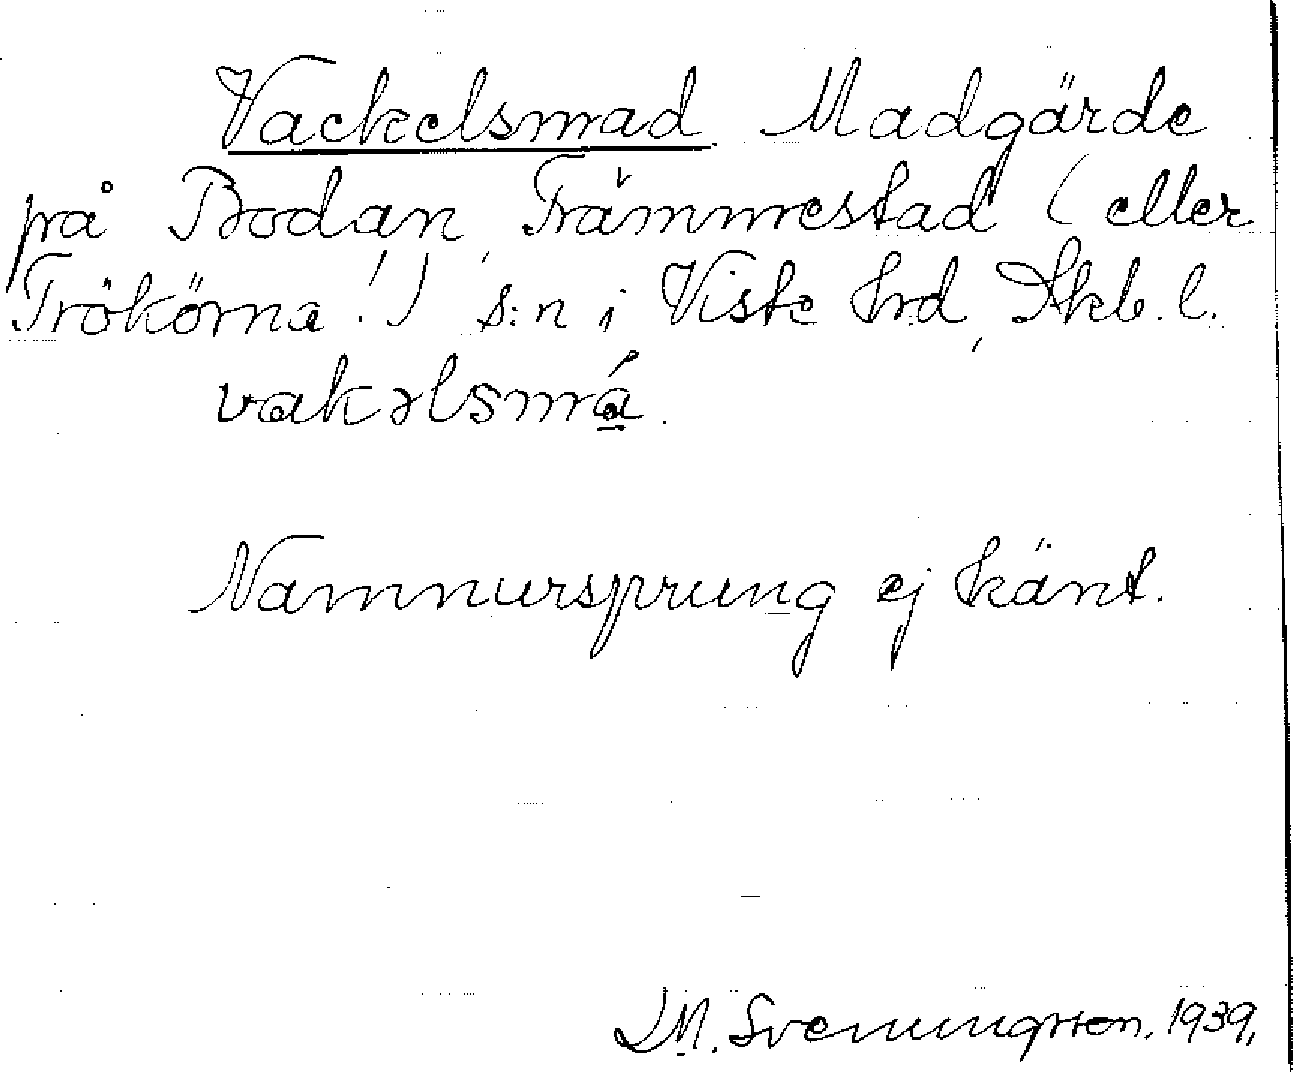 Vackelsmad Madgärde
på Bodan, Främmestad (eller
Trökörna!) s:n i Viste hrd, Skb. l.
vakəlsmá.
Namnursprung ej känt.
M. Svenungsson. 1939.